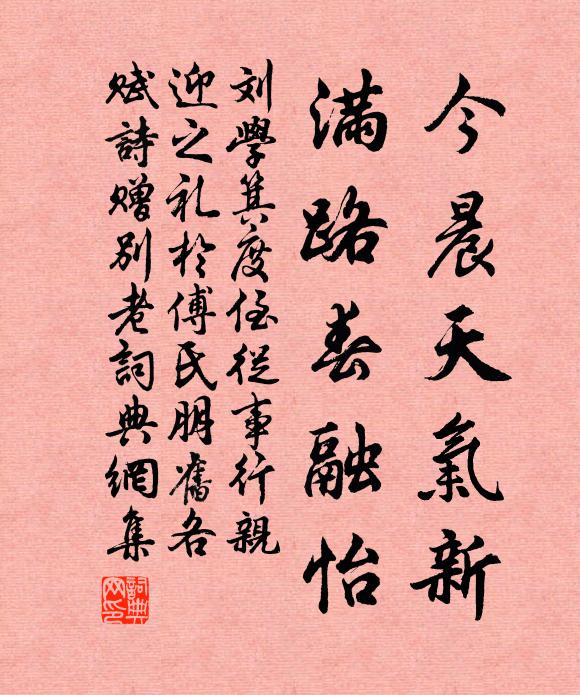 今晨天氣新
滿路春融怡
刘學箕度侄從事行親
迎之礼於傅氏朋舊各
赋詩赠别老詞典網集
詞典网印